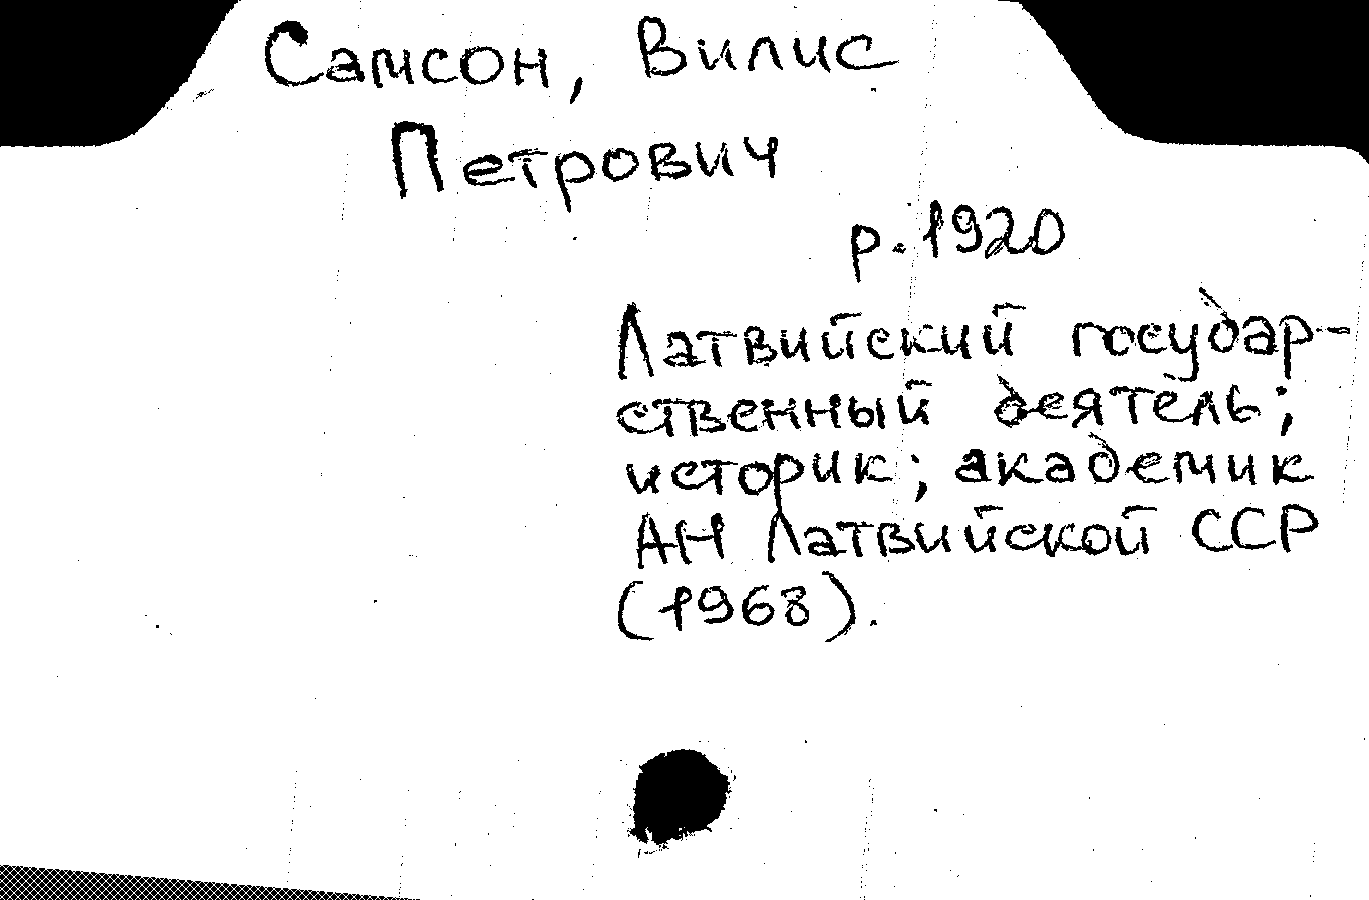 Самсон, Вилис
Петрович
р. 1920
Латвийский государ-
ственный деятель;
историк; академик
АН Латвийской ССР
(1968).